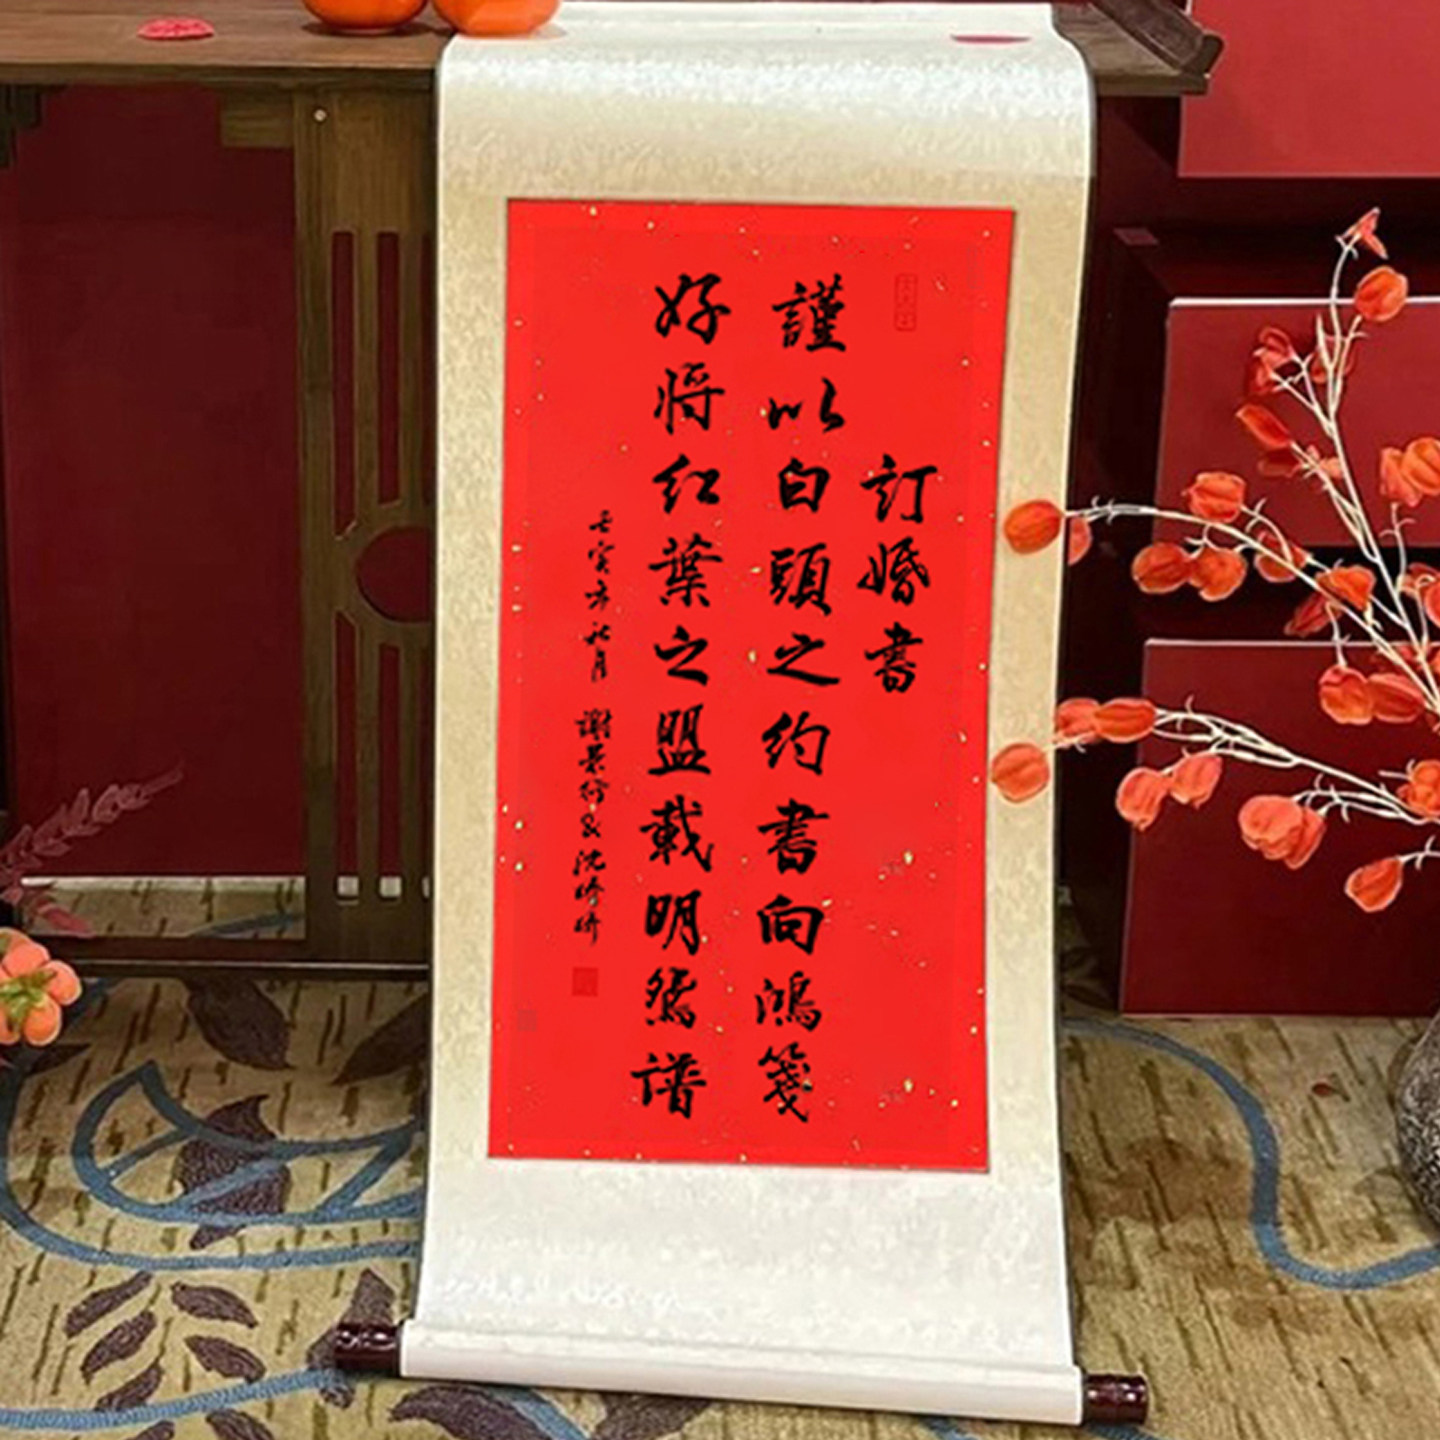 訂婚書
謹以白頭之約書向鴻箋
好將紅葉之盟載明鴛譜
壬寅年
謝景行&沈修妍